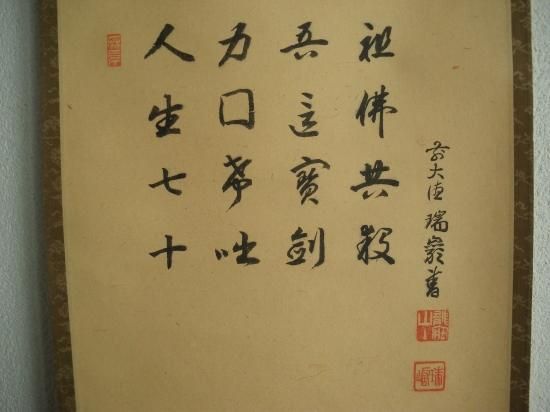 人生七十
力囗希咄
吾這寶劍
祖佛共殺
前大徳瑞巖書